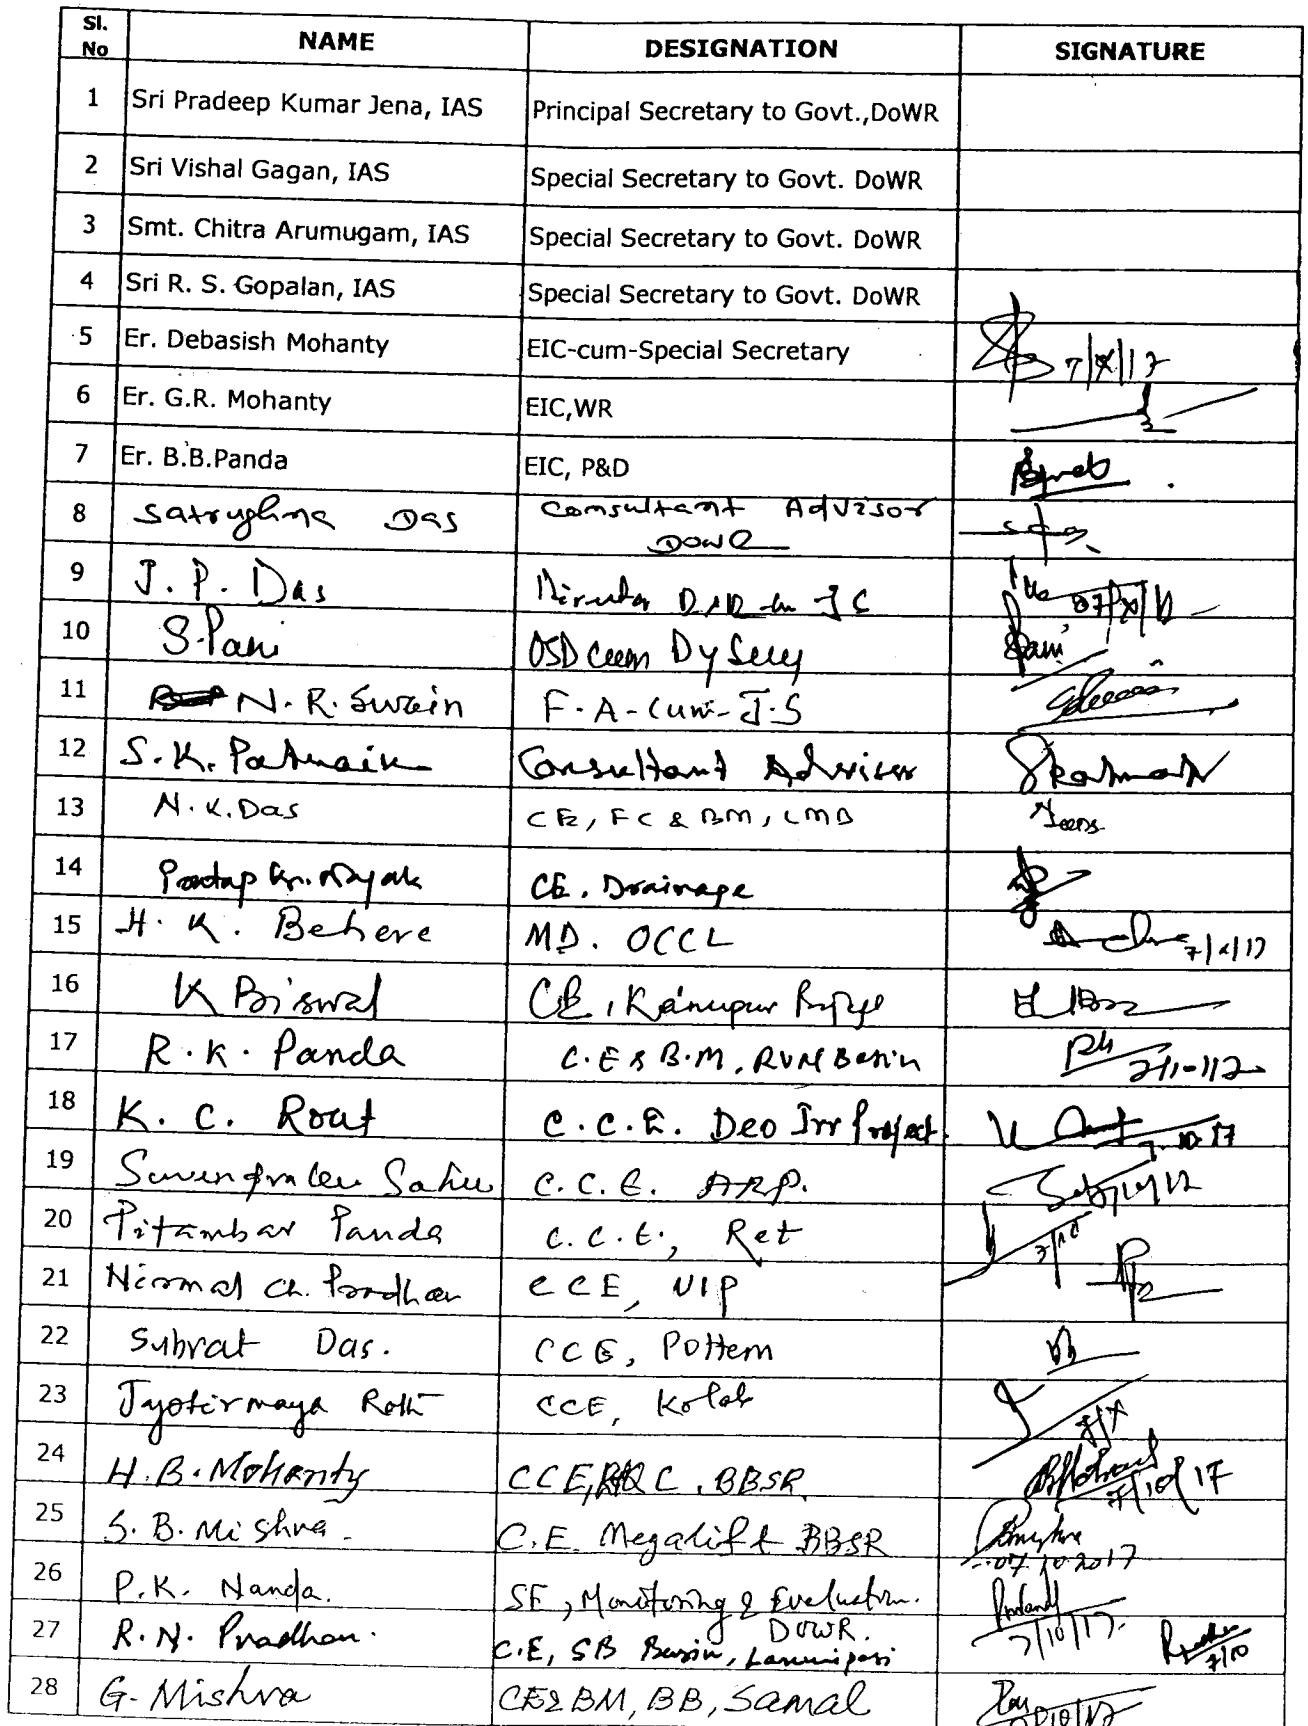 Sl. No NAME DESIGNATION SIGNATURE
1 Sri Pradeep Kumar Jena, IAS Principal Secretary to Govt.,DoWR
2 Sri Vishal Gagan, IAS Special Secretary to Govt. DoWR
3 Smt. Chitra Arumugam, IAS Special Secretary to Govt. DoWR
4 Sri R. S. Gopalan, IAS Special Secretary to Govt. DoWR
5 Er. Debasish Mohanty EIC-cum-Special Secretary
6 Er. G.R. Mohanty EIC,WR
7 Er. B.B.Panda EIC, P&D
8 Satrughna Das Consultant Advisor
DOWR
9 J. P. Das Director
10 S. Pani OSD cum Dy Secy
11 N. R. Swain F. A - Cum - J.S
12 S. K. Patnaik Consultant Advisor
13 N. K. Das CE, FC & BM, LMB
14 Pratap Kr. Nayak CE. Drainage
15 H. K. Behera MD. OCCL
16 K Biswal CE, Kanupur
17 R. K. Panda C.E & B.M, RVN Basin
18 K. C. Rout C.C.E. Deo Irr Project. 7.10.17
19 Sahu C.C.E. ARP.
20 Pitambar Panda C.C.E., Ret
21 Nirmal Ch. Pradhan CCE, UIP
22 Subrat Das. CCE, Pottem
23 Jyotirmaya Rath CCE, Kolab 7/X
24 H.B. Mohanty CCE, BBSR 7/10/17
25 S. B. Mishra. C.E. Megalift BBSR 07.10.2017
26 P.K. Nanda. SE, Monitoring & Evaluation. 7/10/17.
DOWR.
27 R. N. Pradhan. C.E, SB Basin, Laxmiposi 7/10
28 G. Mishra CE & BM, BB, Samal